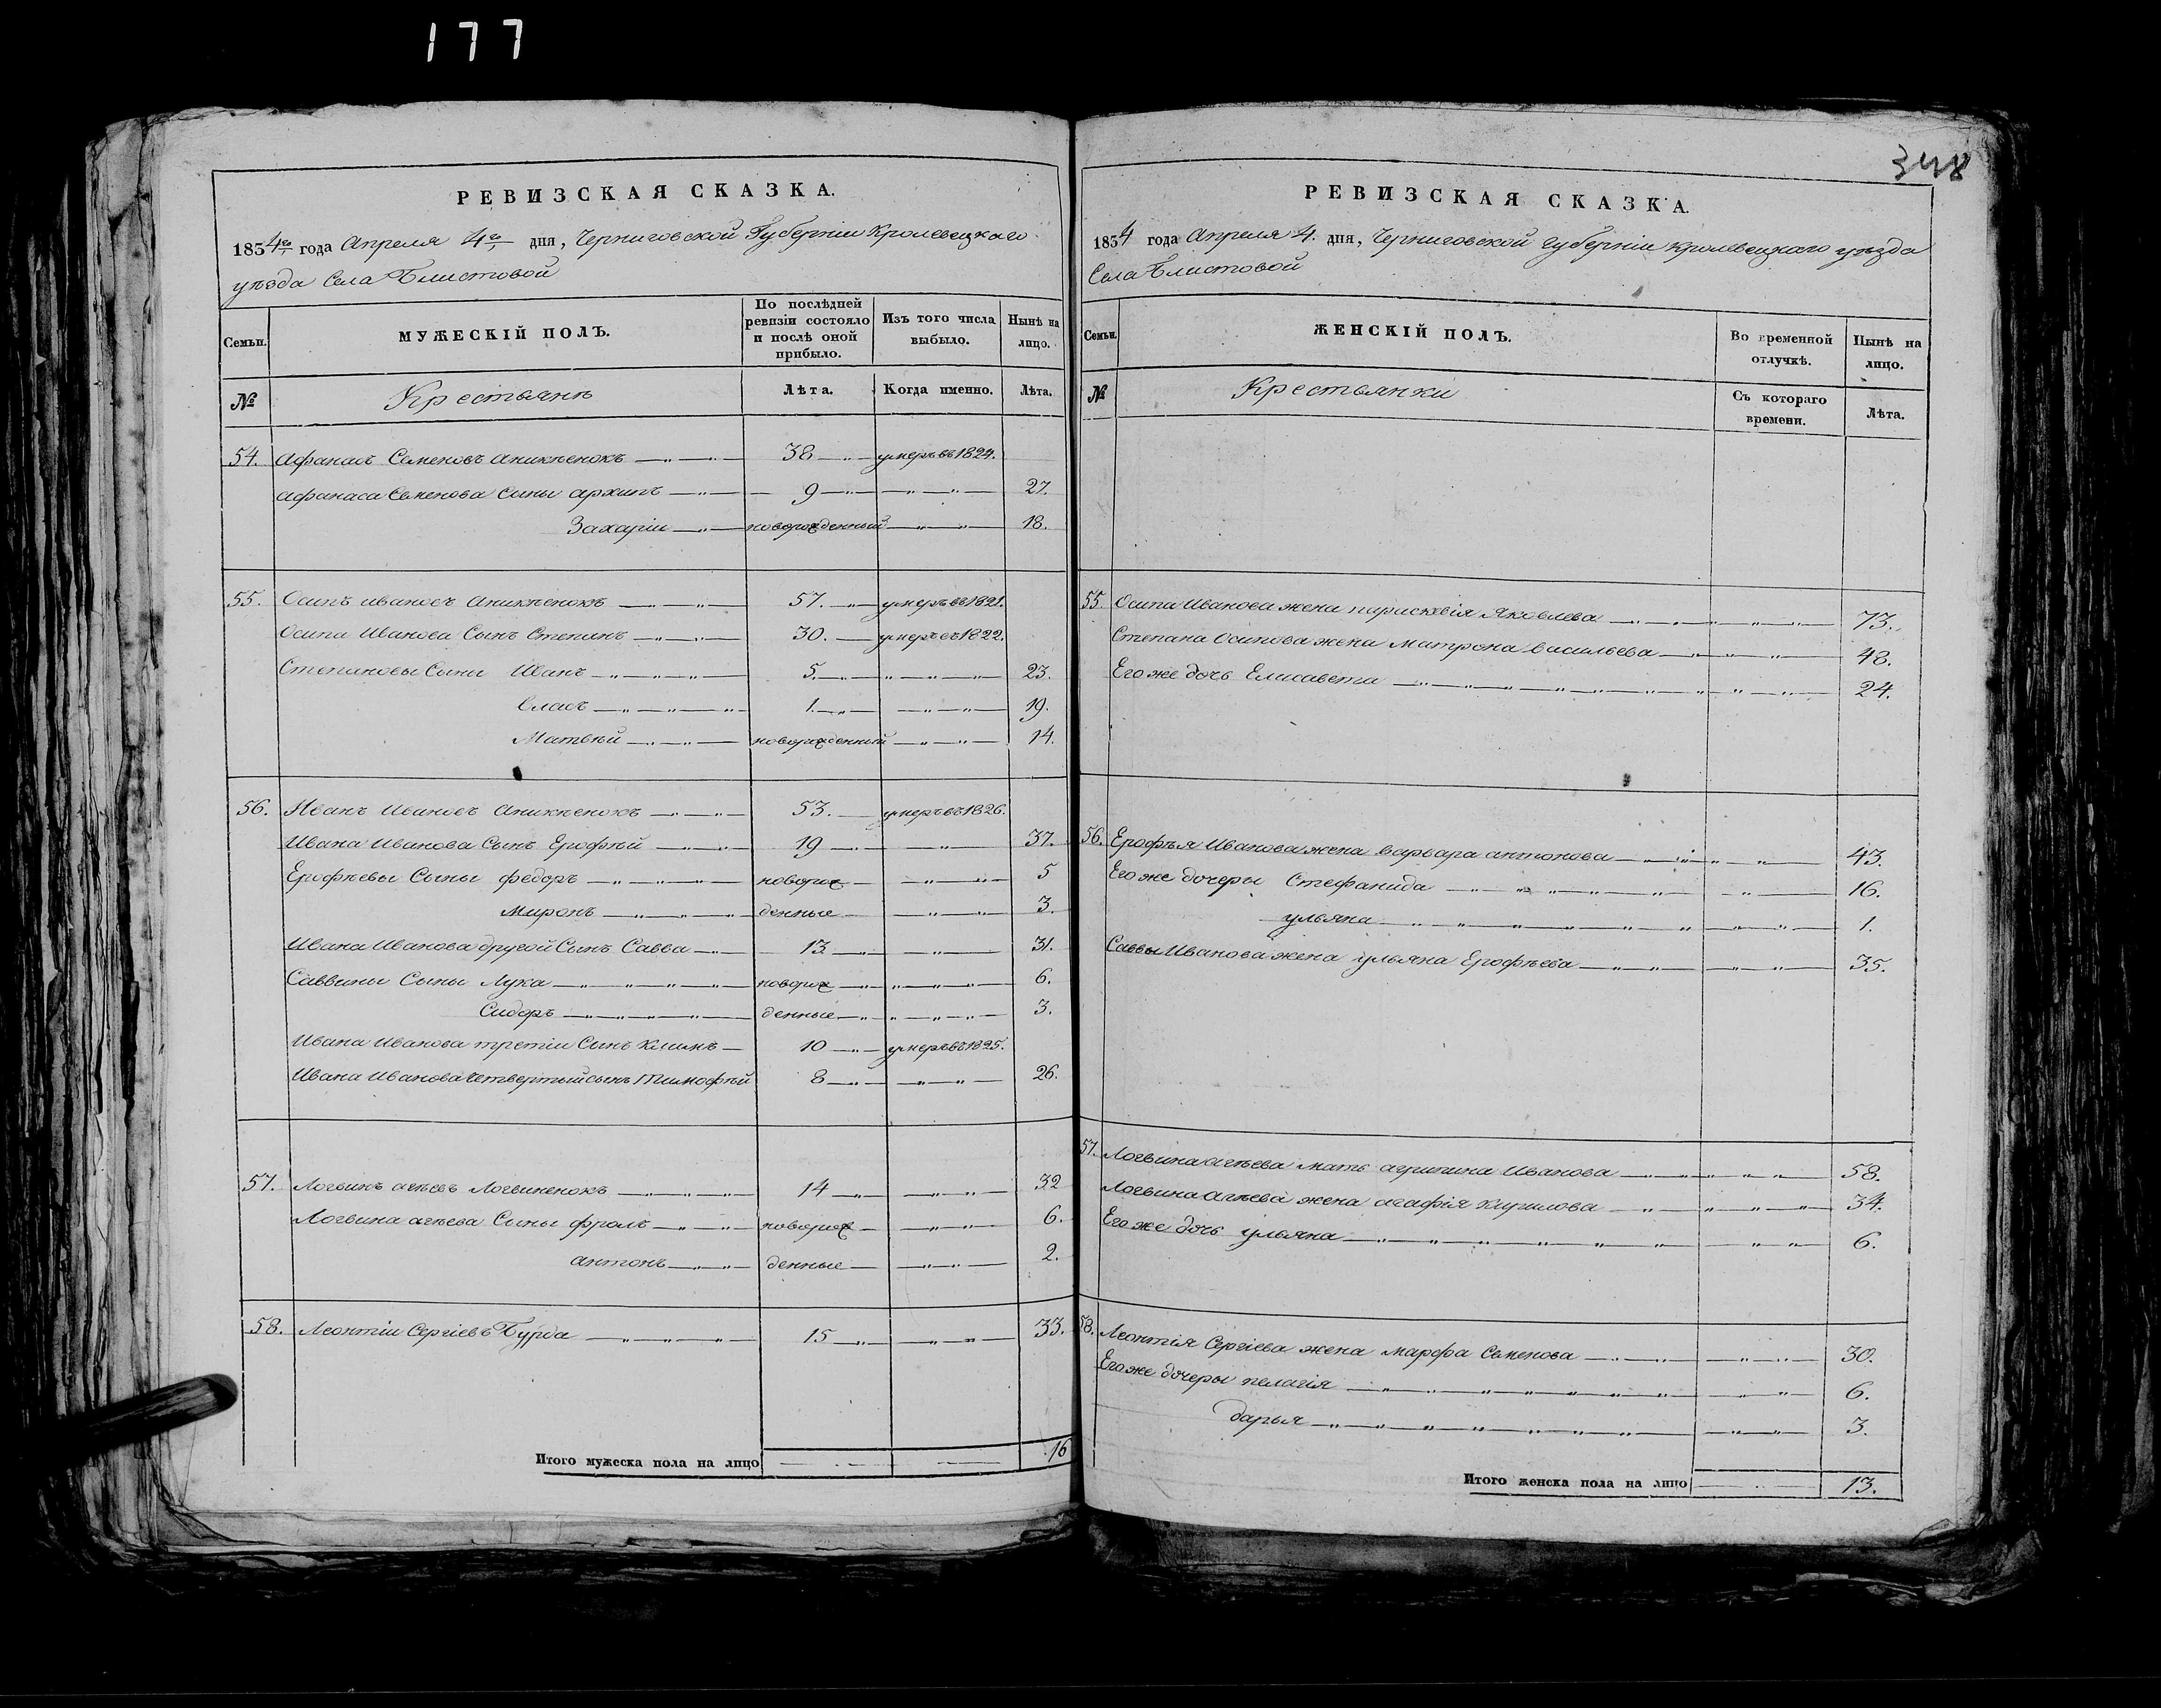 177
РЕВИЗСКАЯ СКАЗКА.
1834го года Апреля 4го дня, Черниговской Губерніи Кролевецкаго
уѣзда Села Блистовой
Семьи.
МУЖЕСКІЙ ПОЛЪ.
По послѣдней ревизіи состояло и послѣ оной прибыло.
Изъ того числа выбыло.
Нынѣ на лицо.
№
Крестьянъ
Лѣта.
Когда именно.
Лѣта.
54. Афанасъ Семеновъ Аникѣенокъ 38 умеръ въ 1824.
Афанаса Семенова Сыны архипъ 9 27.
Захарій новорожденный 18.
55. Осипъ ивановъ Аникѣенокъ 57. умеръ въ 1821.
Осипа Иванова Сынъ Степанъ 30. умеръ въ 1822.
Степановы Сыны Иванъ 5. 23.
Власъ 1. 19.
Матвѣй новорожденный 14.
56. Иванъ Ивановъ Аникѣенокъ 53. умеръ въ 1826.
Ивана Иванова Сынъ Ерофѣй 19 37.
Ерофѣевы Сыны федоръ новорож 5
Миронъ денные 3.
Ивана Иванова другой Сынъ Савва 13 31.
Саввины Сыны Лука новорож 6.
Сидоръ денные 3.
Ивана Иванова третіи Сынъ Климъ 10 умеръ въ 1825.
Ивана Иванова Четвертый сынъ Тимофѣй 8 26.
57. Логвинъ агѣевъ Логвиненокъ 14 32
Логвина агѣева Сыны фролъ новорож 6.
антонъ денные 2.
58. Леонтіи Сергіевъ Бурда 15 33.
Итого мужеска пола на лицо 16
348
РЕВИЗСКАЯ СКАЗКА.
1834 года Апреля 4. дня, Черниговской губерніи кролевецкаго уѣзда
Села Блистовой
Семьи.
ЖЕНСКІЙ ПОЛЪ.
Во временной отлучкѣ.
Нынѣ на лицо.
№
Крестьянки
Съ котораго времени.
Лѣта.
55. Осипа Иванова жена параскевія Яковлева 73.
Степана Осипова жена Матрона васильева 48.
Его же дочь Елисавета 24.
56. Ерофѣя Иванова жена варвара антонова 43.
Его же дочеры Стефанида 16.
ульяна 1.
Саввы Иванова жена ульяна Ерофѣева 35.
57. Логвина агѣева мать агрипина Иванова 58.
Логвина Агѣева жена агафія Кирилова 34.
Его же дочь ульяна 6.
58. Леонтія Сергіева жена марфа Семенова 30.
Его же дочеры пелагія 6.
дарья 3.
Итого женска пола на лицо 13.